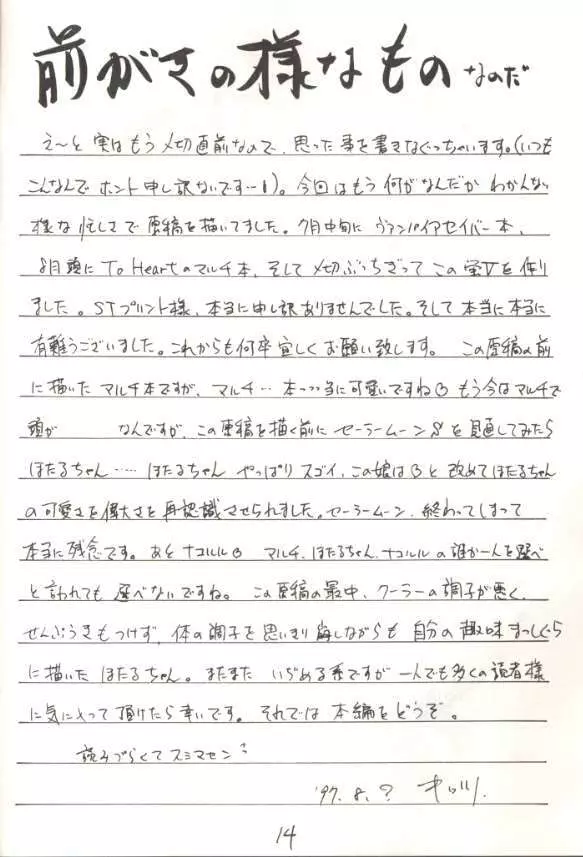 前がきの様なものなのだ
え〜と実はもう〆切直前なので、思った事を書きなぐっちゃいます。(いつも
こんなんでホント申し訳ないです…!)。今回はもう何がなんだかわかんない
様な忙しさで原稿を描いてました。7月中旬にヴァンパイアセイバー本、
8月頭にTo Heartのマルチ本、そして〆切ぶっちぎってこの蛍Ⅴを作り
ました。STプリント様、本当に申し訳ありませんでした。そして本当に本当に
有難うございました。これからも何卒宜しくお願い致します。この原稿の前
に描いたマルチ本ですが、マルチ…本っっ当に可愛いですね もう今はマルチで
頭が なんですが、この原稿を描く前にセーラームーンSを見直してみたら
ほたるちゃん……ほたるちゃんやっぱりスゴイ、この娘は と改めてほたるちゃん
の可愛さを偉大さを再認識させられました。セーラームーン、終わってしまって
本当に残念です。あとナコルル マルチ、ほたるちゃん、ナコルルの誰か一人を選べ
と言われても選べないですね。この原稿の最中、クーラーの調子が悪く、
せんぷうきもつけず、体の調子を思いきり崩しながらも自分の趣味まっしぐら
に描いたほたるちゃん。またまたいぢめる系ですが一人でも多くの読者様
に気に入って頂けたら幸いです。それでは本編をどうぞ。
読みづらくてスミマセン
'97.8.?
14